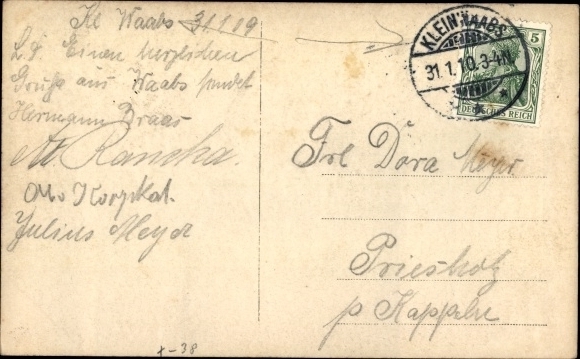 Kl Waabs 31.1.19
L. D. Einen herzlichen
Gruß aus Waabs sendet
Hermann Braas
Otto
Julius Meyer
KLEIN WAABS
31.1.10.3-4N.
* *
5
DEUTSCHES REICH
Frl Dora Meyer
Priesholz
p Kappeln
+-38